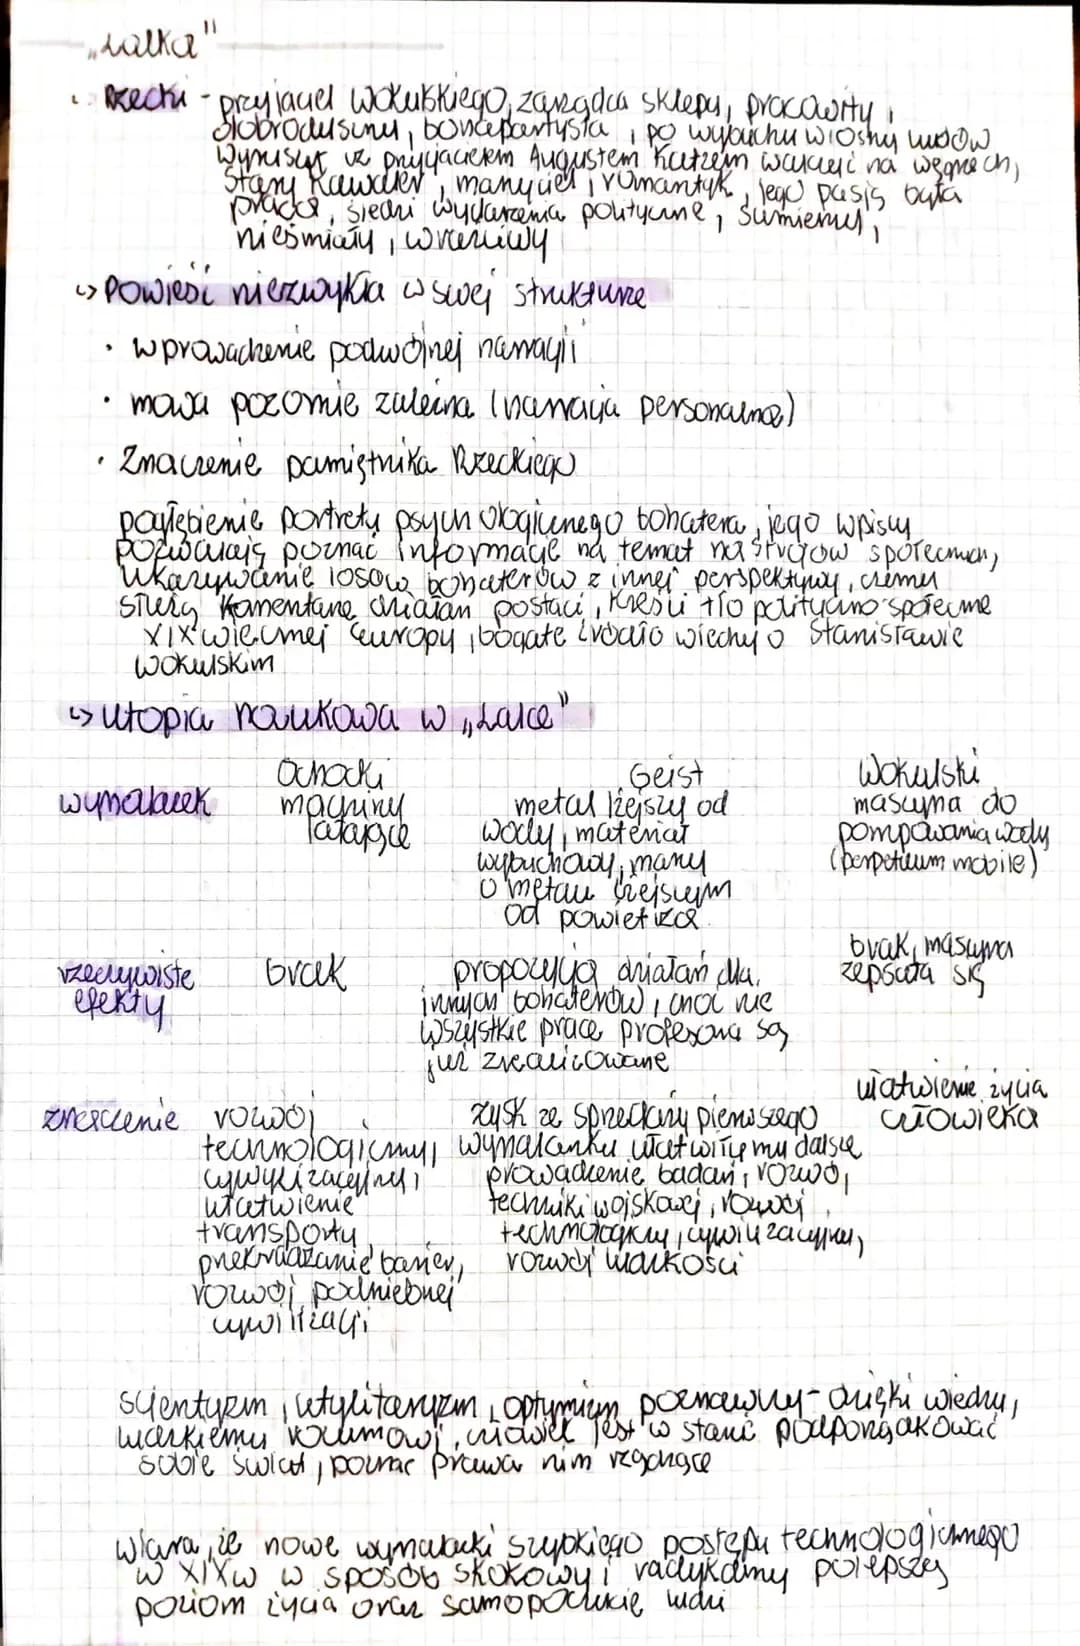 „Lalka"
Rzecki - przyjaciel Wokulskiego, zarządca sklepu, pracowity,
dobroduszny, bonapartysta, po wybuchu wiosny ludów
wyruszył z przyjacielem Augustem Katzem walczyć na węgrzech,
stary kawaler, marzyciel, romantyk, jego pasją była
praca, śledzi wydarzenia polityczne, sumienny,
nieśmiały, wrażliwy
↳ Powieść niezwykła w swej strukturze
· wprowadzenie podwójnej narracji
· mowa pozornie zależna (narracja personalna)
· Znaczenie pamiętnika Rzeckiego
pogłębienie portretu psychologicznego bohatera, jego wpisy
pozwalają poznać informacje na temat nastrojów społecznych,
ukazywanie losów bohaterów z innej perspektywy, czemu
służą komentarze działań postaci, kreśli tło polityczno-społeczne
XIX wiecznej europy, bogate źródło wiedzy o Stanisławie
Wokulskim
↳ utopia naukowa w „Lalce"
Ochocki Geist Wokulski
wynalazek machiny metal lżejszy od maszyna do
latające wody, materiał pompowania wody
wybuchowy, (perpetuum mobile)
o metalu lżejszym
od powietrza
brak, maszyna
rzeczywiste brak propozycja działań dla zepsuła się
efekty innych bohaterów, choć nie
wszystkie prace profesora są
już zrealizowane
ułatwienie życia
znaczenie rozwój zysk ze sprzedaży pierwszego człowieka
technologiczny, wynalazku ułatwiłby mu dalsze
cywilizacyjny, prowadzenie badań, rozwój
ułatwienie techniki wojskowej, rozwój
transportu, technologiczny, cywilizacyjny,
przekraczanie barier, rozwój ludzkości
rozwój podniebnej
cywilizacji
scjentyzm, utylitaryzm, optymizm poznawczy - dzięki wiedzy,
ludzkiemu rozumowi, człowiek jest w stanie podporządkować
sobie świat, poznać prawa nim rządzące
wiara, że nowe wynalazki szybkiego postępu technologicznego
w XIXw w sposób skokowy i radykalny polepszą
poziom życia oraz samopoczucie ludzi